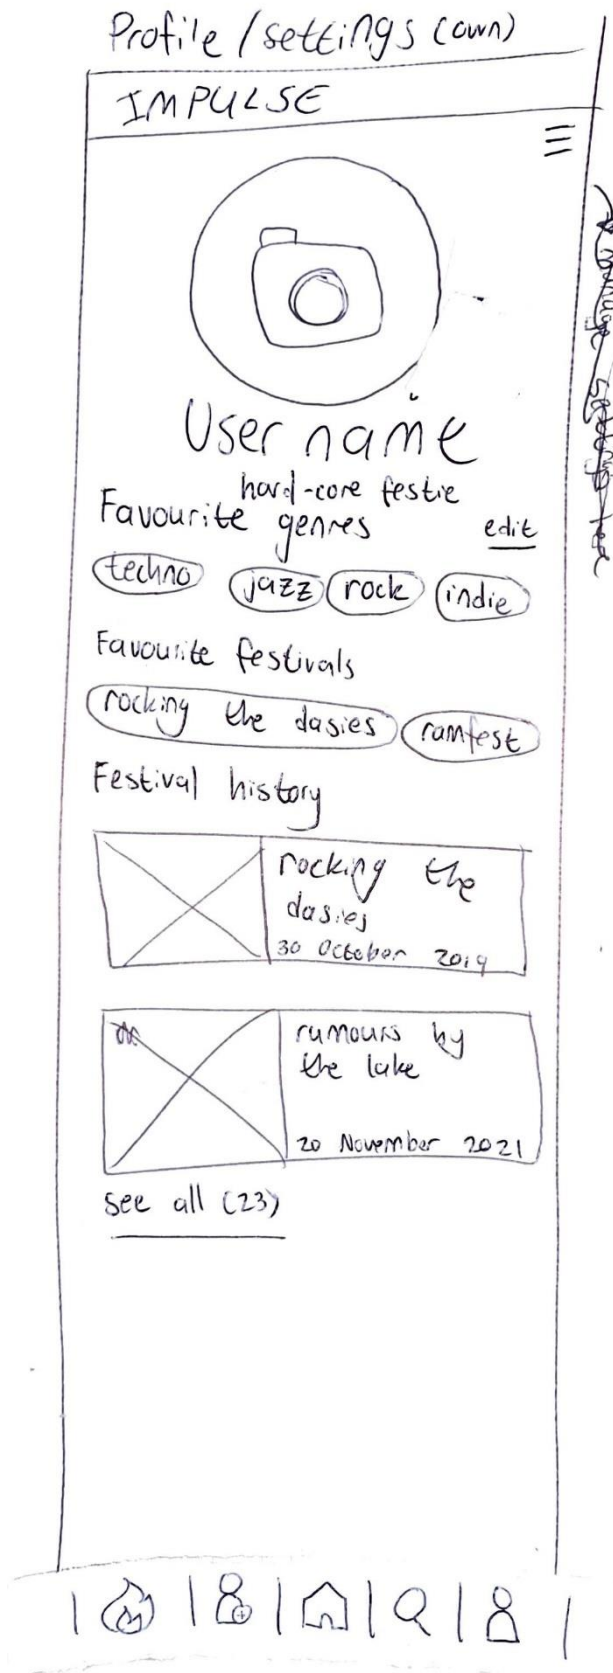 Profile / settings (own)
IMPULSE
User name
hard-core festie
Favourite genres
edit
techno jazz rock indie
Favourite festivals
rocking the dasies ramfest
Festival history
rocking the
dasies
30 October 2019
rumours by
the lake
20 November 2021
see all (23)
manage settings here